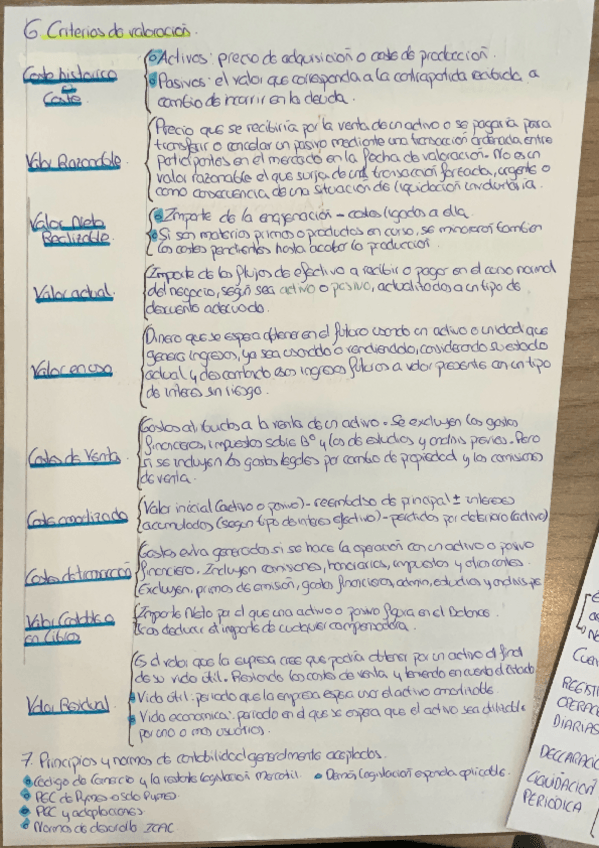 6. Criterios de valoración.
Coste histórico o Coste
Activos: precio de adquisición o coste de producción.
Pasivos: el valor que corresponda a la contrapartida recibida a
cambio de incurrir en la deuda.
Valor Razonable
Precio que se recibiría por la venta de un activo o se pagaría para
transferir o cancelar un pasivo mediante una transacción ordenada entre
participantes en el mercado en la fecha de valoración. No es un
valor razonable el que surja de una transacción forzada, urgente o
como consecuencia de una situación de liquidación involuntaria.
Valor Neto
Realizable
Importe de la enajenación - costes ligados a ella.
Si son materias primas o productos en curso, se minoran también
los costes pendientes hasta acabar la producción.
Valor actual
Importe de los flujos de efectivo a recibir o pagar en el curso normal
del negocio, según sea activo o pasivo, actualizados a un tipo de
descuento adecuado.
Valor en uso
Dinero que se espera obtener en el futuro usando un activo o unidad que
genera ingresos, ya sea usándolo o vendiéndolo, considerando su estado
actual y descontando esos ingresos futuros a valor presente con un tipo
de interés sin riesgo.
Costes de Venta
Gastos atribuidos a la venta de un activo. Se excluyen los gastos
financieros, impuestos sobre Bº y los de estudios y análisis previos. Pero
si se incluyen los gastos legales por cambio de propiedad y las comisiones
de venta.
Coste amortizado
Valor inicial (activo o pasivo) - reembolso de principal ± intereses
acumulados (según tipo de interés efectivo) - pérdidas por deterioro (activo)
Costes de transacción
Gastos extra generados si se hace la operación con un activo o pasivo
financiero. Incluyen comisiones, honorarios, impuestos y otros costes.
Excluyen, primas de emisión, gastos financieros, admin, estudios y análisis
Valor Contable o
en Libros
Importe Neto por el que una activo o pasivo figura en el Balance
tras deducir el importe de cualquier
Valor Residual
Es el valor que la empresa cree que podría obtener por un activo al final
de su vida útil. Restando los costes de venta y teniendo en cuenta el estado
Vida útil: periodo que la empresa espera usar el activo amortizable.
Vida económica: periodo en el que se espera que el activo sea utilizable
por uno o más usuarios.
7. Principios y normas de contabilidad generalmente aceptados.
Código de Comercio y la restante legislación Mercantil. Demás legislación española aplicable.
PGC de Pymes o solo Pymes
PGC y adaptaciones
Normas de desarrollo ICAC
REGISTR
OPERAC
DIARIAS
DECLARACIÓ
LIQUIDACIÓN
PERIODICA